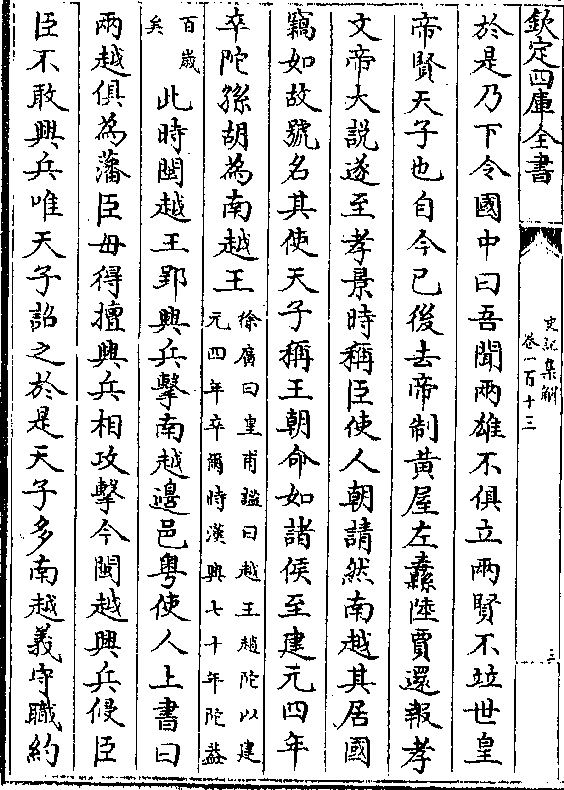 欽定四庫全書
史記集解
卷一百十三
三
於是乃下令國中曰吾聞兩雄不俱立兩賢不竝世皇
帝賢天子也自今已後去帝制黃屋左纛陸賈還報孝
文帝大說遂至孝景時稱臣使人朝請然南越其居國
竊如故號名其使天子稱王朝命如諸侯至建元四年
卒陀孫胡為南越王
徐廣曰皇甫謐曰越王趙陀以建
元四年卒爾時漢興七十年陀蓋
百歲
矣
此時閩越王郢興兵擊南越邊邑粤使人上書曰
兩越俱為藩臣毋得擅興兵相攻擊今閩越興兵侵臣
臣不敢興兵唯天子詔之於是天子多南越義守職約